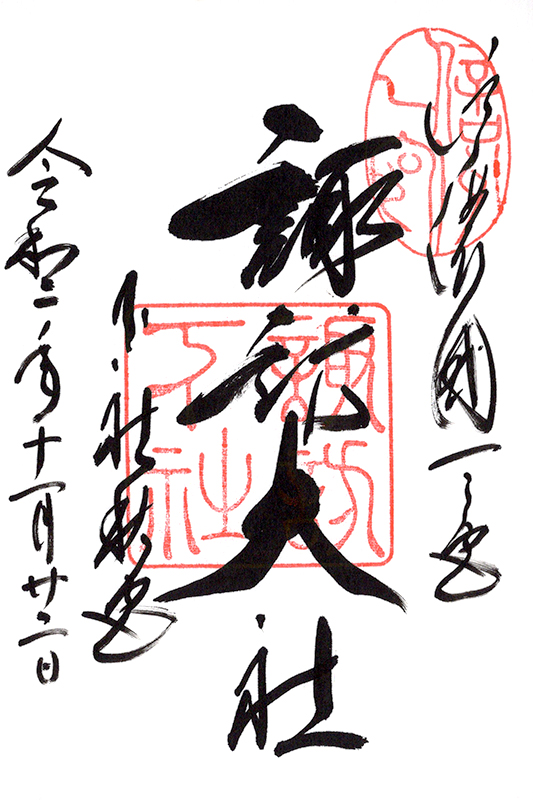 信濃國一之宮
諏訪大社
下社秋宮
令和二年十一月廿二日
諏訪
下社